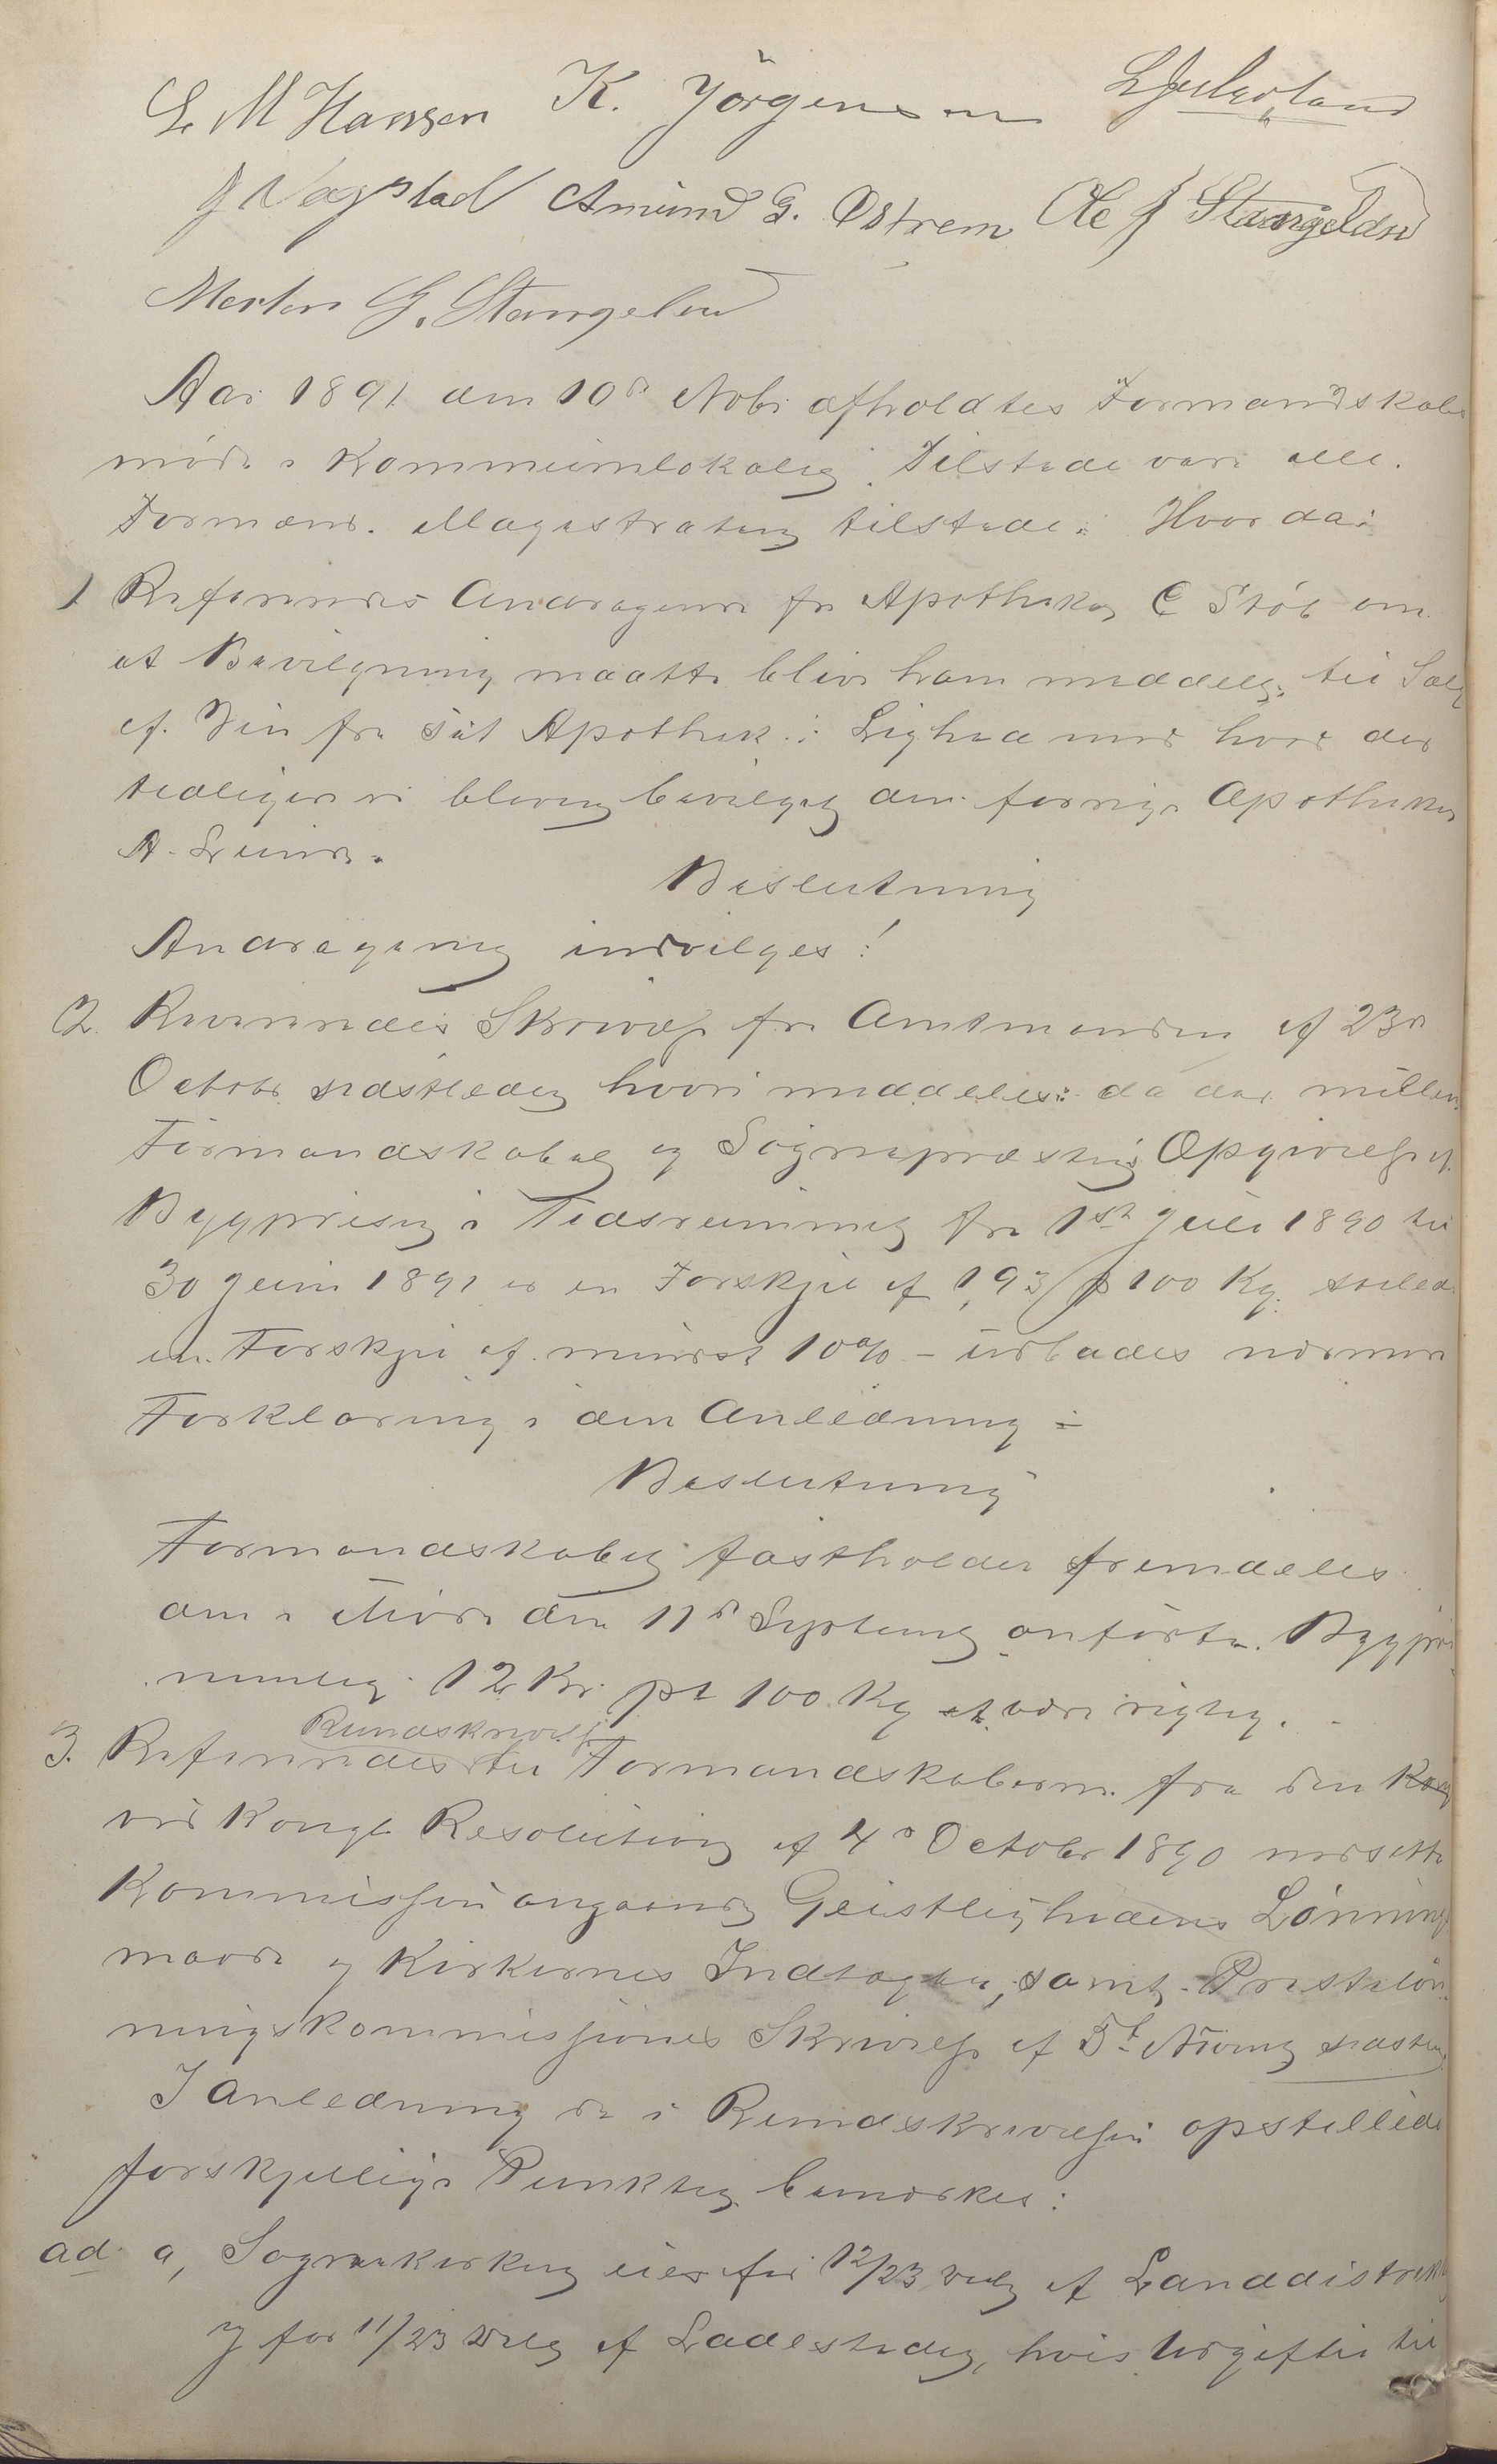 L. M Hansen K. Jörgensen
J Vagstad Amund G. Østrem Ole J Stangeland
Morten G. Stangeland
Aar 1891 den 10de Novbr afholdtes Formandskabs
møde i Kommunelokalet. Tilstede var alle
Formænd. Magistraten tilstede. Hvor da:
1 Refereredes Andragende fra Apotheker C Støb om
at Bevilgning maatte blive ham meddelt til Salg
af Vin fra sit Apothek i Lighed med hvad der
tidligere er bleven bevilget den forrige Apotheker
A. Lund.
Beslutning
Andragendet indvilges!
2. Refereredes Skrivelse fra Amtmanden af 23de
Octobr sidstleden hvori meddeles: da der mellem
Formandskabet og Sognepræstens Opgivelse af
Bygprisen i Tidsrummet fra 1ste Juli 1890 til
30 Juni 1891 er en Forskjel af 1,93 p 100 Kg. saaled
en Forskjel af mindst 10% – udbades nærmere
Forklaring i den Anledning –
Beslutning
Formandskabet fastholder fremdeles
den i Møde den 11te Septemb anførte Bygpris
nemlig 12 Kr. pr 100 Kg at være rigtig.
Rundskrivelse
3. Refereredes til Formandskaberne fra den Kong
ved Kongl Resolution af 4de October 1890 nedsatte
Kommission angaaende Geistlighedens Lønnings
maade og Kirkernes Indtægter, samt Præsteløn
ningskommissionens Skrivelse af 5t Novemb sidstl
I Anledning de i Rundskrivelsen opstillede
forskjellige Punkter bemærkes:
ad a, Sognekirken eies for 12/23 Del af Landdistriktet
og for 11/23 Del af Ladestedet, hvis Udgifter til